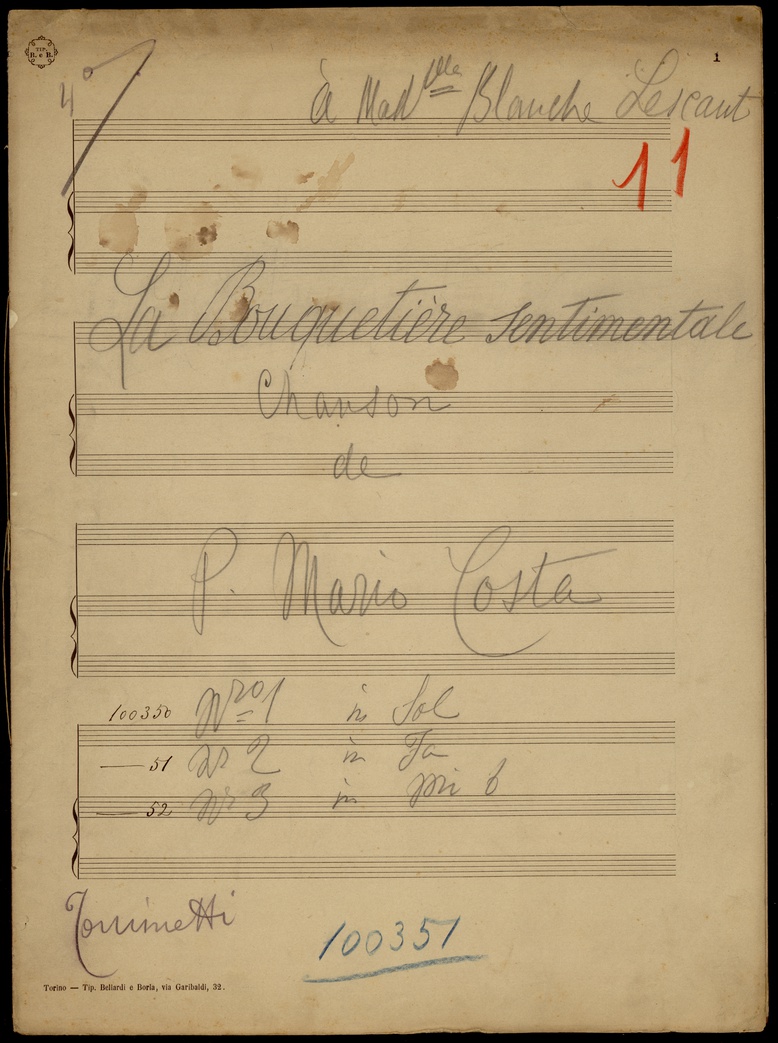 TIP.
B. e B.
1
4°
à Mad^lle Blanche Lescaut
11
La Bouquetière Sentimentale
Chanson
de
P. Mario Costa
100350 Nro 1 in Sol
— 51 Nr 2 in Fa
— 52 Nr 3 in mi b
100351
Torino — Tip. Bellardi e Borla, via Garibaldi, 32.